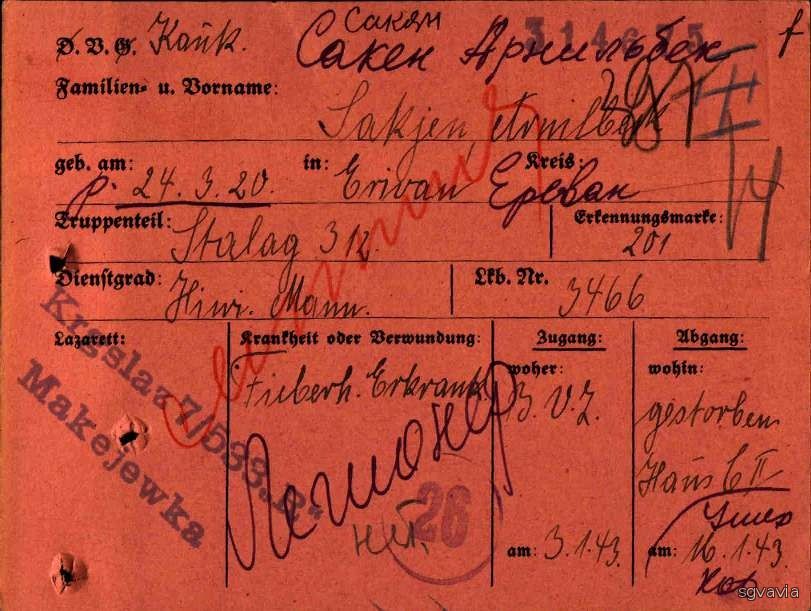 Сакян
314675
D. V. G. Kauk. Сакен Арнильбек f
Familien- u. Vorname:
Sakjen,
geb. am: 24. 3. 20. in: Eriwan Kreis: Ереван
Truppenteil: Stalag 312. Erkennungsmarke: 201
Dienstgrad: Hiwi. Mann. Lkb. Nr. 3466
Lazarett: Krankheit oder Verwundung: Zugang: Abgang:
Krgslaz 7/533.R.
Makejewka
Fieberh. Erkrank.
Легионер
нет.
26
woher: B. V. Z.
am: 3.1.43.
wohin: gestorben
Haus C II
Умер
am: 16.1.43.
sgvavia